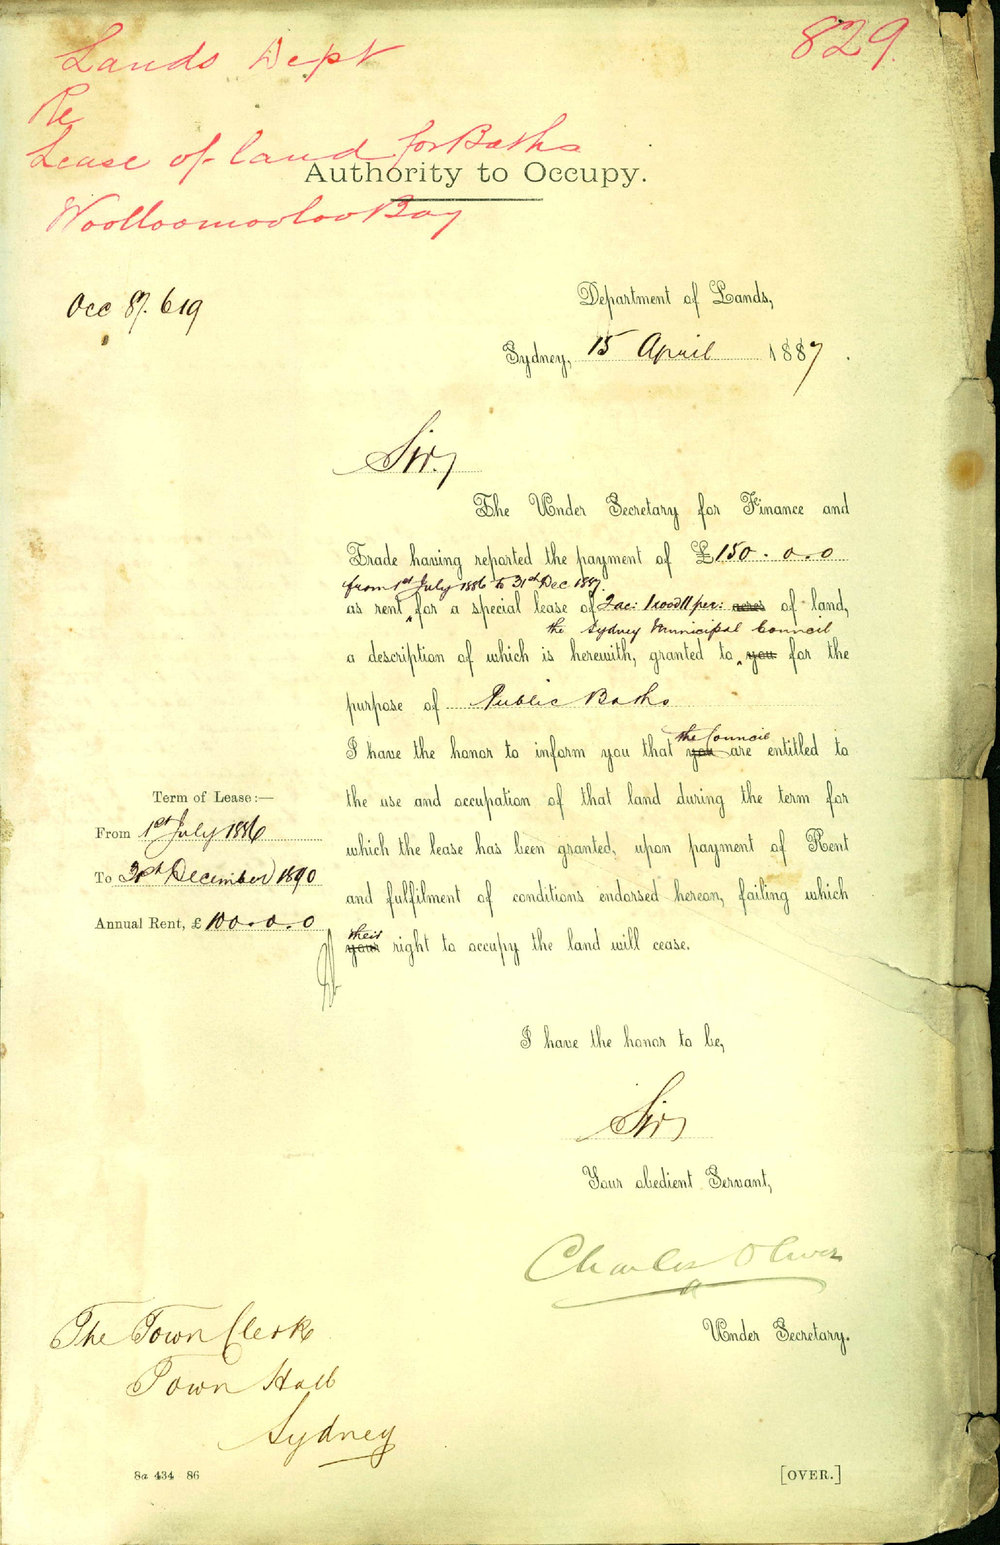 829.
Lands Dept
Re
Lease of land for Baths
Woolloomooloo Bay
Authority to Occupy.
Occ 87. 619
Department of Lands,
Sydney, 15 April 1887.
Sir,
The Under Secretary for Finance and
Trade having reported the payment of £150. 0. 0
from 1st July 1886 to 31st Dec 1887
as rent for a special lease of 2ac: 1rood 11per: acres of land,
the Sydney Municipal Council
a description of which is herewith, granted to you for the
purpose of Public Baths
the Council
I have the honor to inform you that you are entitled to
the use and occupation of that land during the term for
which the lease has been granted, upon payment of Rent
and fulfilment of conditions endorsed hereon, failing which
their
your right to occupy the land will cease.
Term of Lease:—
From 1st July 1886
To 31st December 1890
Annual Rent, £ 100. 0. 0
I have the honor to be,
Sir,
Your obedient Servant,
Charles Oliver
Under Secretary.
The Town Clerk
Town Hall
Sydney
8a 434 86
[OVER.]